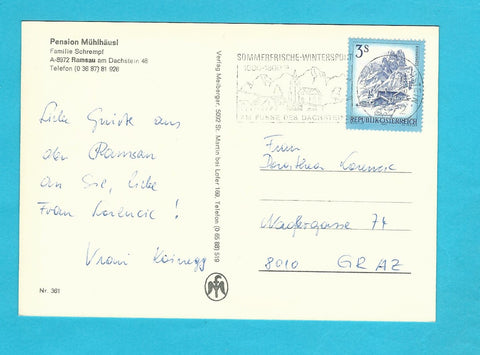 Pension Mühlhäusl
Familie Schrempf
A-8972 Ramsau am Dachstein 48
Telefon (0 36 87) 81 926
Liebe Grüße aus
der Ramsau
an Sie, liebe
Frau Lorencic !
Vroni
Nr. 361
Verlag Meiberger, 5092 St. Martin bei Lofer 169, Telefon (0 65 88) 519
SOMMERFRISCHE-WINTERSPORT
AM FUSSE DES DACHSTEIN
3S
REPUBLIK ÖSTERREICH
Frau
Dorothea Lorencic
74
8010 GRAZ